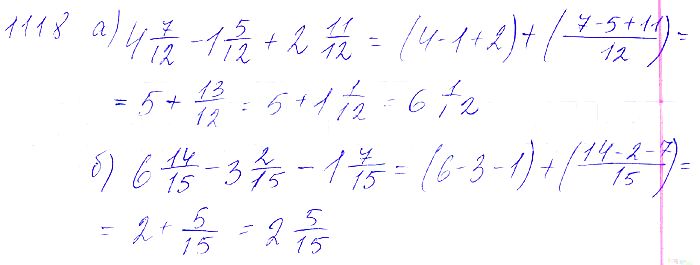 1118 а) 4 7/12 - 1 5/12 + 2 11/12 = (4-1+2) + (7-5+11/12) =
= 5 + 13/12 = 5 + 1 1/12 = 6 1/12
б) 6 14/15 - 3 2/15 - 1 7/15 = (6-3-1) + (14-2-7/15) =
= 2 + 5/15 = 2 5/15